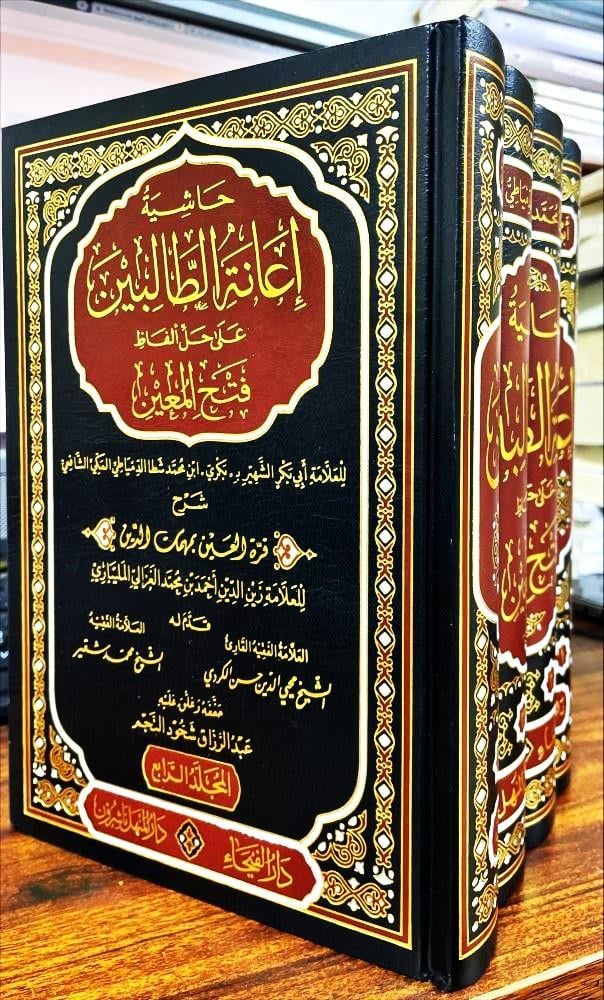 حاشية
إعانة الطالبين
على حل ألفاظ
فتح المعين
للعلامة أبي بكر الشهير بـ « بكري » ابن محمد شطا الدمياطي المكي الشافعي
شرح
قرة العين بمهمات الدين
للعلامة زين الدين أحمد بن محمد الغزالي المليباري
قدم له
العلامة الفقيه القارئ
الشيخ محيي الدين حسن الكردي
العلامة الفقيه
الشيخ محمد شقير
حققه وعلق عليه
عبد الرزاق شحود النجم
المجلد الرابع
دار الفيحاء
دار المنهل ناشرون
حاشية
على حل